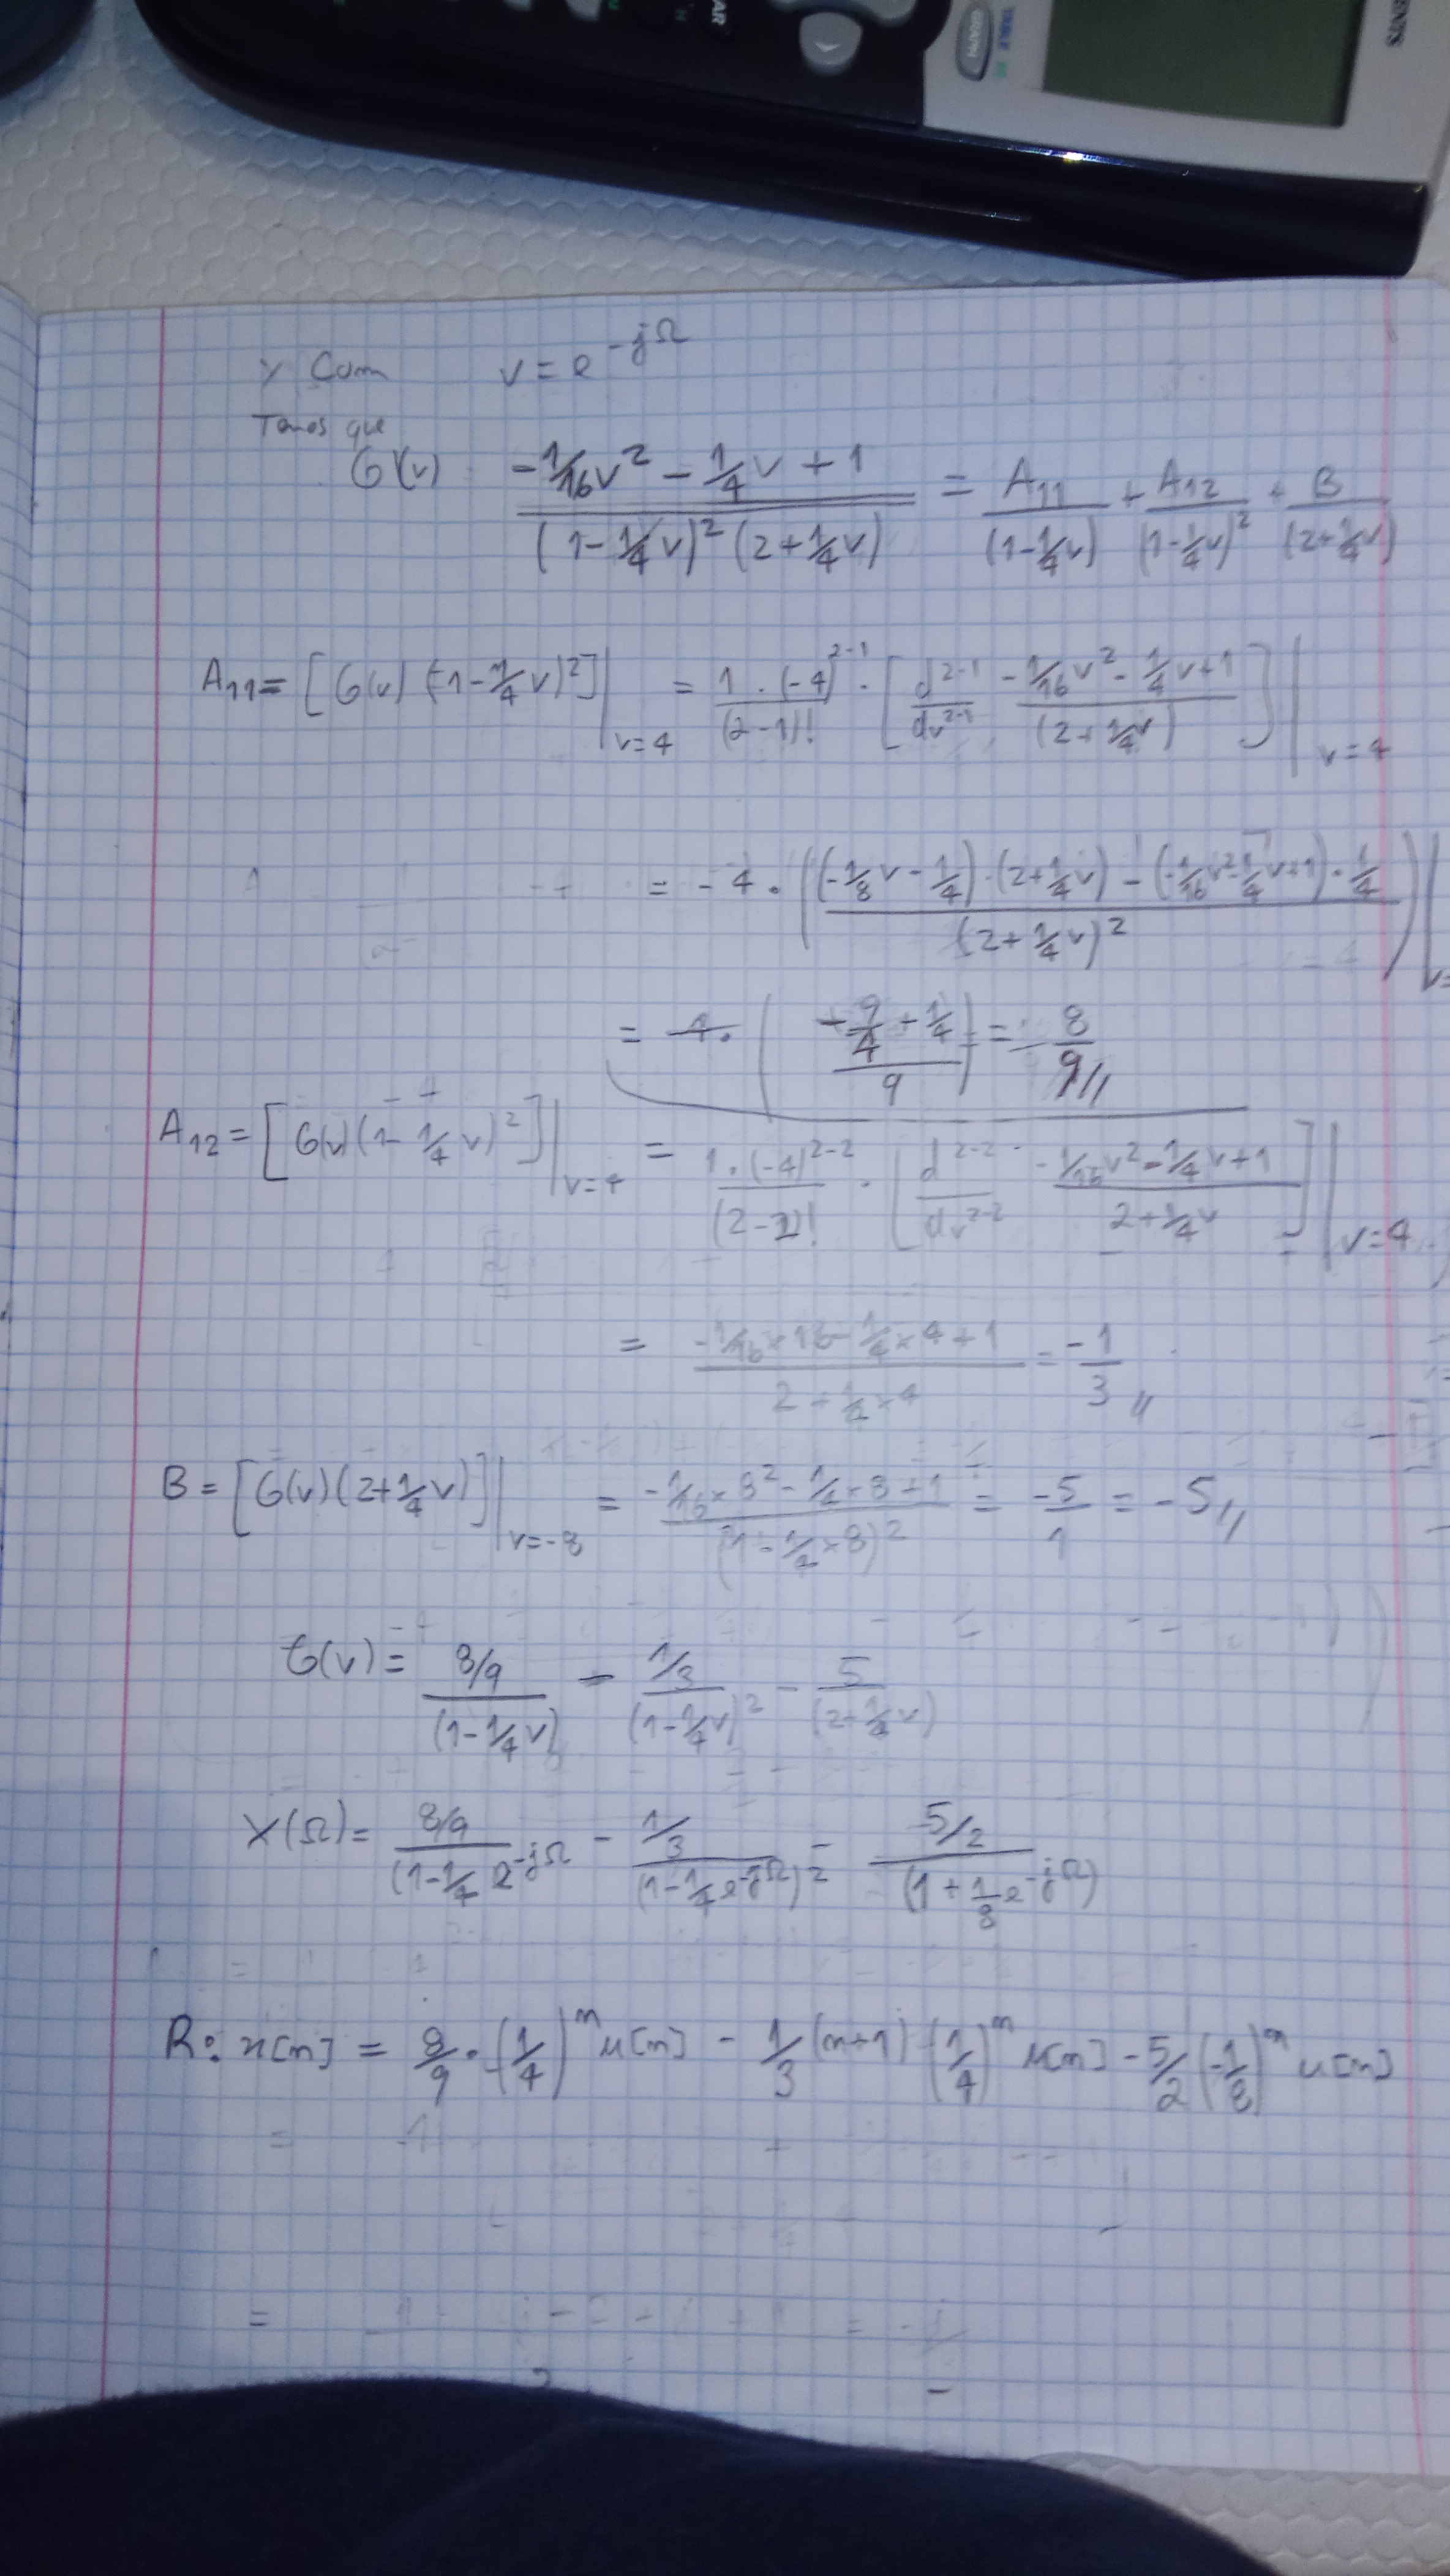 AR
GRAPH
TABLE
Com v = e^{-jΩ}
Temos que
G(v) (-1/16 v² - 1/4 v + 1) / ((1 - 1/4 v)² (2 + 1/4 v)) = A₁₁/(1 - 1/4 v) + A₁₂/(1 - 1/4 v)² + B/(2 + 1/4 v)
A₁₁ = [G(v) (1 - 1/4 v)²]|v=4 = 1·(-4)^{2-1}/(2-1)! · [d^{2-1}/dv^{2-1} (-1/16 v² - 1/4 v + 1)/(2 + 1/4 v)]|v=4
= -4 · (((-1/8 v - 1/4)·(2 + 1/4 v) - (-1/16 v² - 1/4 v + 1)·1/4) / (2 + 1/4 v)²)|v=
= -4· ((-9/4 + 1/4)/9) = 8/9 //
A₁₂ = [G(v)(1 - 1/4 v)²]|v=4 = 1·(-4)^{2-2}/(2-2)! · [d^{2-2}/dv^{2-2} (-1/16 v² - 1/4 v + 1)/(2 + 1/4 v)]|v=4
= (-1/16 × 16 - 1/4 × 4 + 1)/(2 + 1/4 × 4) = -1/3 //
B = [G(v)(2 + 1/4 v)]|v=-8 = (-1/16 × 8² - 1/4 × 8 + 1)/(1 - 1/4 × 8)² = -5/1 = -5 //
G(v) = (8/9)/(1 - 1/4 v) - (1/3)/(1 - 1/4 v)² - 5/(2 + 1/4 v)
X(Ω) = (8/9)/(1 - 1/4 e^{-jΩ} - (1/3)/(1 - 1/4 e^{-jΩ})² - (5/2)/(1 + 1/8 e^{-jΩ})
R: x[n] = 8/9 · (1/4)^n u[n] - 1/3 (n+1) (1/4)^n u[n] - 5/2 (-1/8)^n u[n]